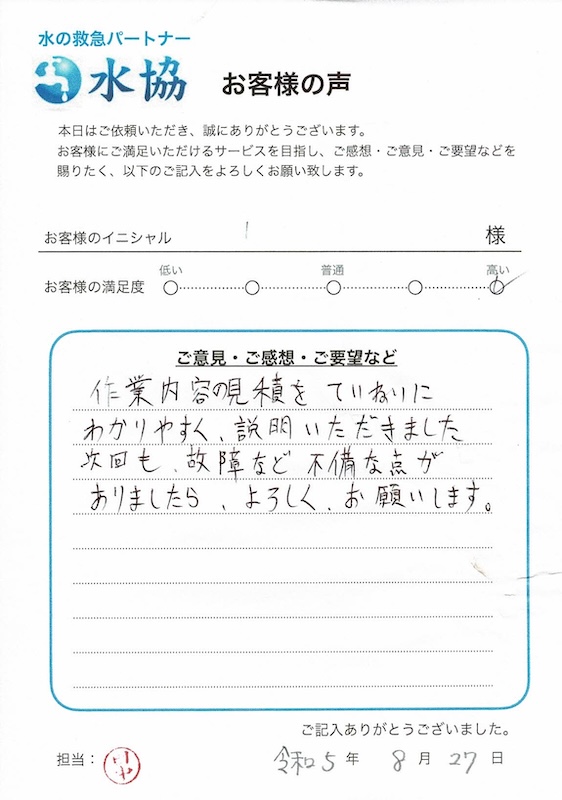 水の救急パートナー
水協 お客様の声
本日はご依頼いただき、誠にありがとうございます。
お客様にご満足いただけるサービスを目指し、ご感想・ご意見・ご要望などを
賜りたく、以下のご記入をよろしくお願い致します。
お客様のイニシャル 様
低い 普通 高い
お客様の満足度
ご意見・ご感想・ご要望など
作業内容の見積を ていねいに
わかりやすく、説明いただきました
次回も、故障など 不備な点が
ありましたら、よろしく、お願いします。
ご記入ありがとうございました。
担当: 令和5年 8月27日